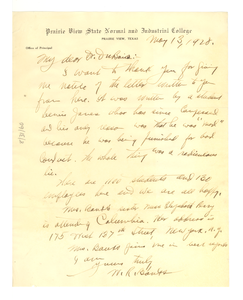 Prairie View State Normal and Industrial College
PRAIRIE VIEW, TEXAS
Office of Principal
May 13, 1928.
My dear Dr. DuBois:
I want to thank you for giving
me notice of the letter written to you
from here. It was written by a student
whose
and his only reason was that he was "mad"
because he was being punished for bad
conduct. The whole thing was a
lie.
There are 1100 students and 150
employees here and we are all happy.
Mrs. Banks' sister Miss Elizabeth
is attending Columbia. Her address is
175 West 137th Street New York, N.Y.
Mrs. Banks joins me in best regards
I am
Yours truly
W. R. Banks